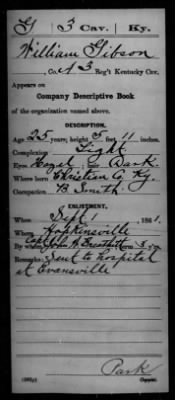 G | 3 Cav. | Ky.
William Gibson
Co. A 3 Reg't Kentucky Cav.
Appears on
Company Descriptive Book
of the organization named above.
DESCRIPTION.
Age 25 years; height 5 feet 11 inches.
Complexion Light
Eyes Hazel; hair Dark.
Where born Christian Co Ky.
Occupation B Smith
ENLISTMENT.
When Sept 1, 1861.
Where Hopkinsville
By whom Capt John W Breathitt term 3 y's
Remarks: Sent to hospital
at Evansville
Park
Copyist.